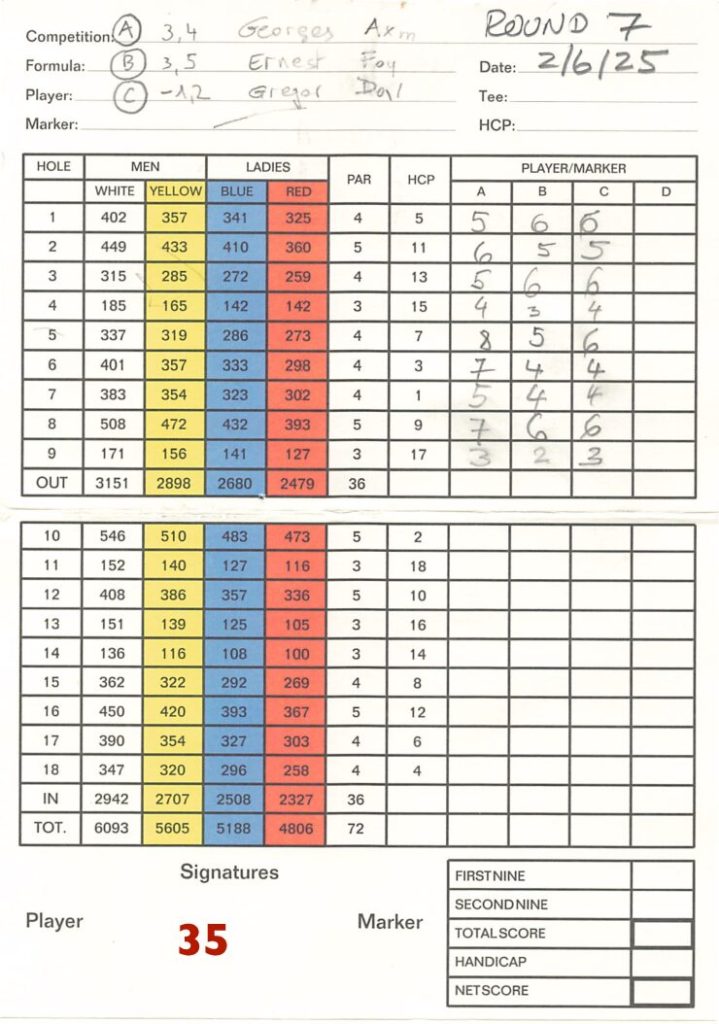 Competition: A 3,4 Georges Axm ROUND 7
Formula: B 3,5 Ernest Foy Date: 2/6/25
Player: C -1,2 Gregor Tee:
Marker: HCP:
HOLE MEN LADIES PAR HCP PLAYER/MARKER
WHITE YELLOW BLUE RED A B C D
1 402 357 341 325 4 5 5 6 6
2 449 433 410 360 5 11 6 5 5
3 315 285 272 259 4 13 5 6 6
4 185 165 142 142 3 15 4 3 4
5 337 319 286 273 4 7 8 5 6
6 401 357 333 298 4 3 7 4 4
7 383 354 323 302 4 1 5 4 4
8 508 472 432 393 5 9 7 6 6
9 171 156 141 127 3 17 3 2 3
OUT 3151 2898 2680 2479 36
10 546 510 483 473 5 2
11 152 140 127 116 3 18
12 408 386 357 336 5 10
13 151 139 125 105 3 16
14 136 116 108 100 3 14
15 362 322 292 269 4 8
16 450 420 393 367 5 12
17 390 354 327 303 4 6
18 347 320 296 258 4 4
IN 2942 2707 2508 2327 36
TOT. 6093 5605 5188 4806 72
Signatures
Player 35 Marker
FIRST NINE
SECOND NINE
TOTAL SCORE
HANDICAP
NET SCORE